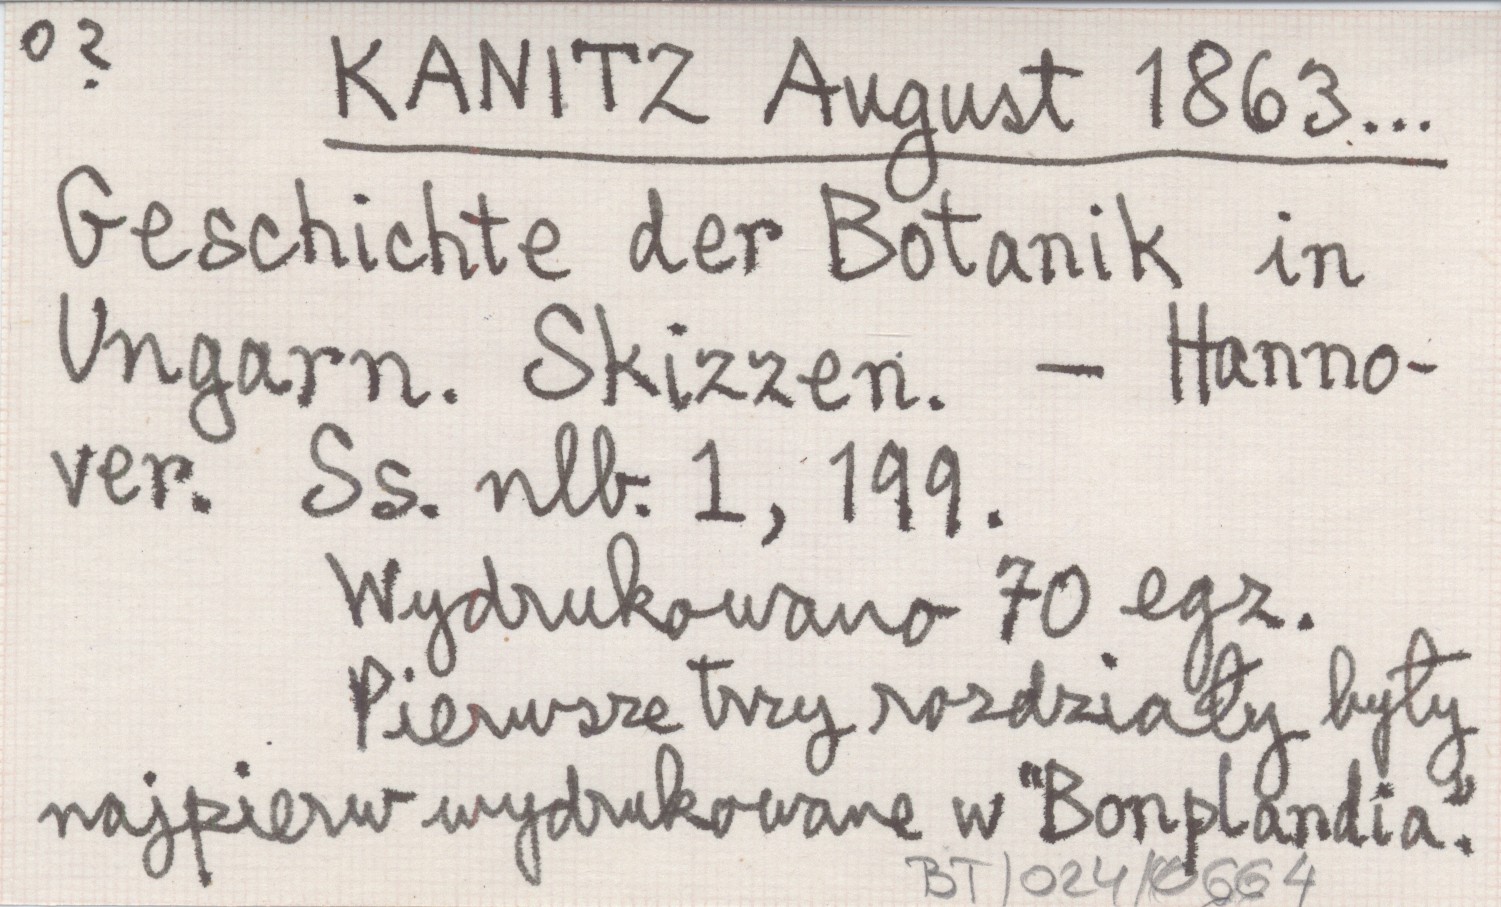 o ?
KANITZ August 1863...
Geschichte der Botanik in
Ungarn. Skizzen. – Hanno-
ver. Ss. nlb. 1, 199.
Wydrukowano 70 egz.
Pierwsze trzy rozdziały były
najpierw wydrukowane w "Bonplandia".
BT/024/0664